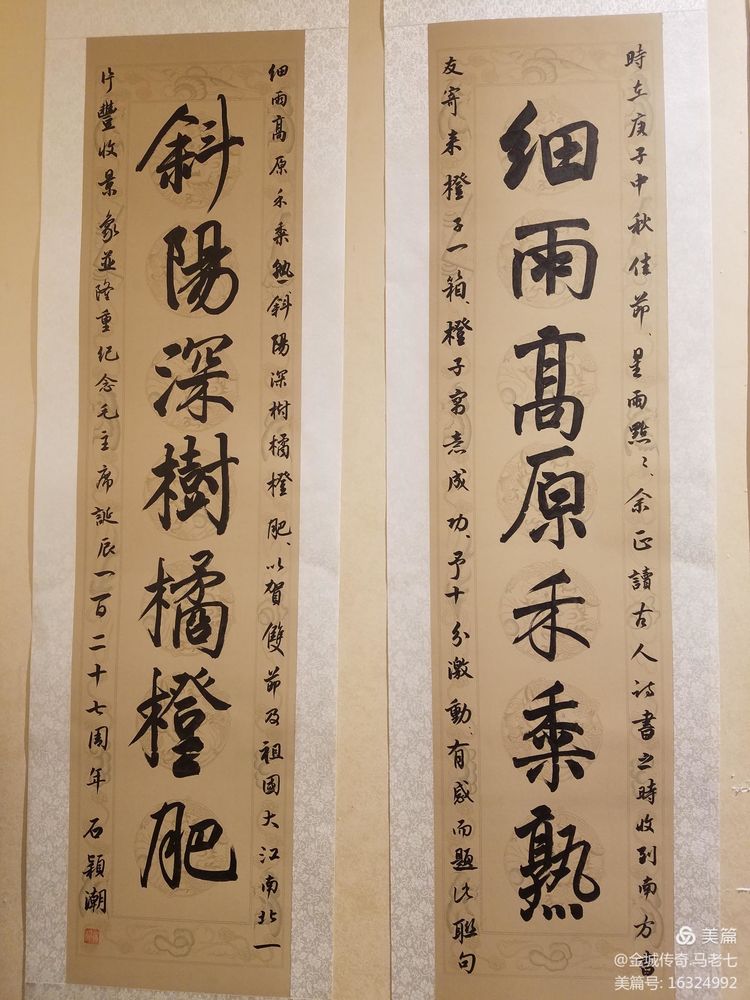 時在庚子中秋佳節、星雨點〻、余正讀古人詩書之時收到南方書
細雨髙原禾黍熟
友寄来橙子一箱、橙子寓意成功、予十分激動、有感而題此聯句
細雨髙原禾黍熟斜陽深樹橘橙肥、以賀雙節及祖國大江南北一
斜陽深樹橘橙肥
片豐收景象並隆重紀念毛主席誕辰一百二十七周年 石穎潮
美篇
@金城传奇.马老七
美篇号: 16324992